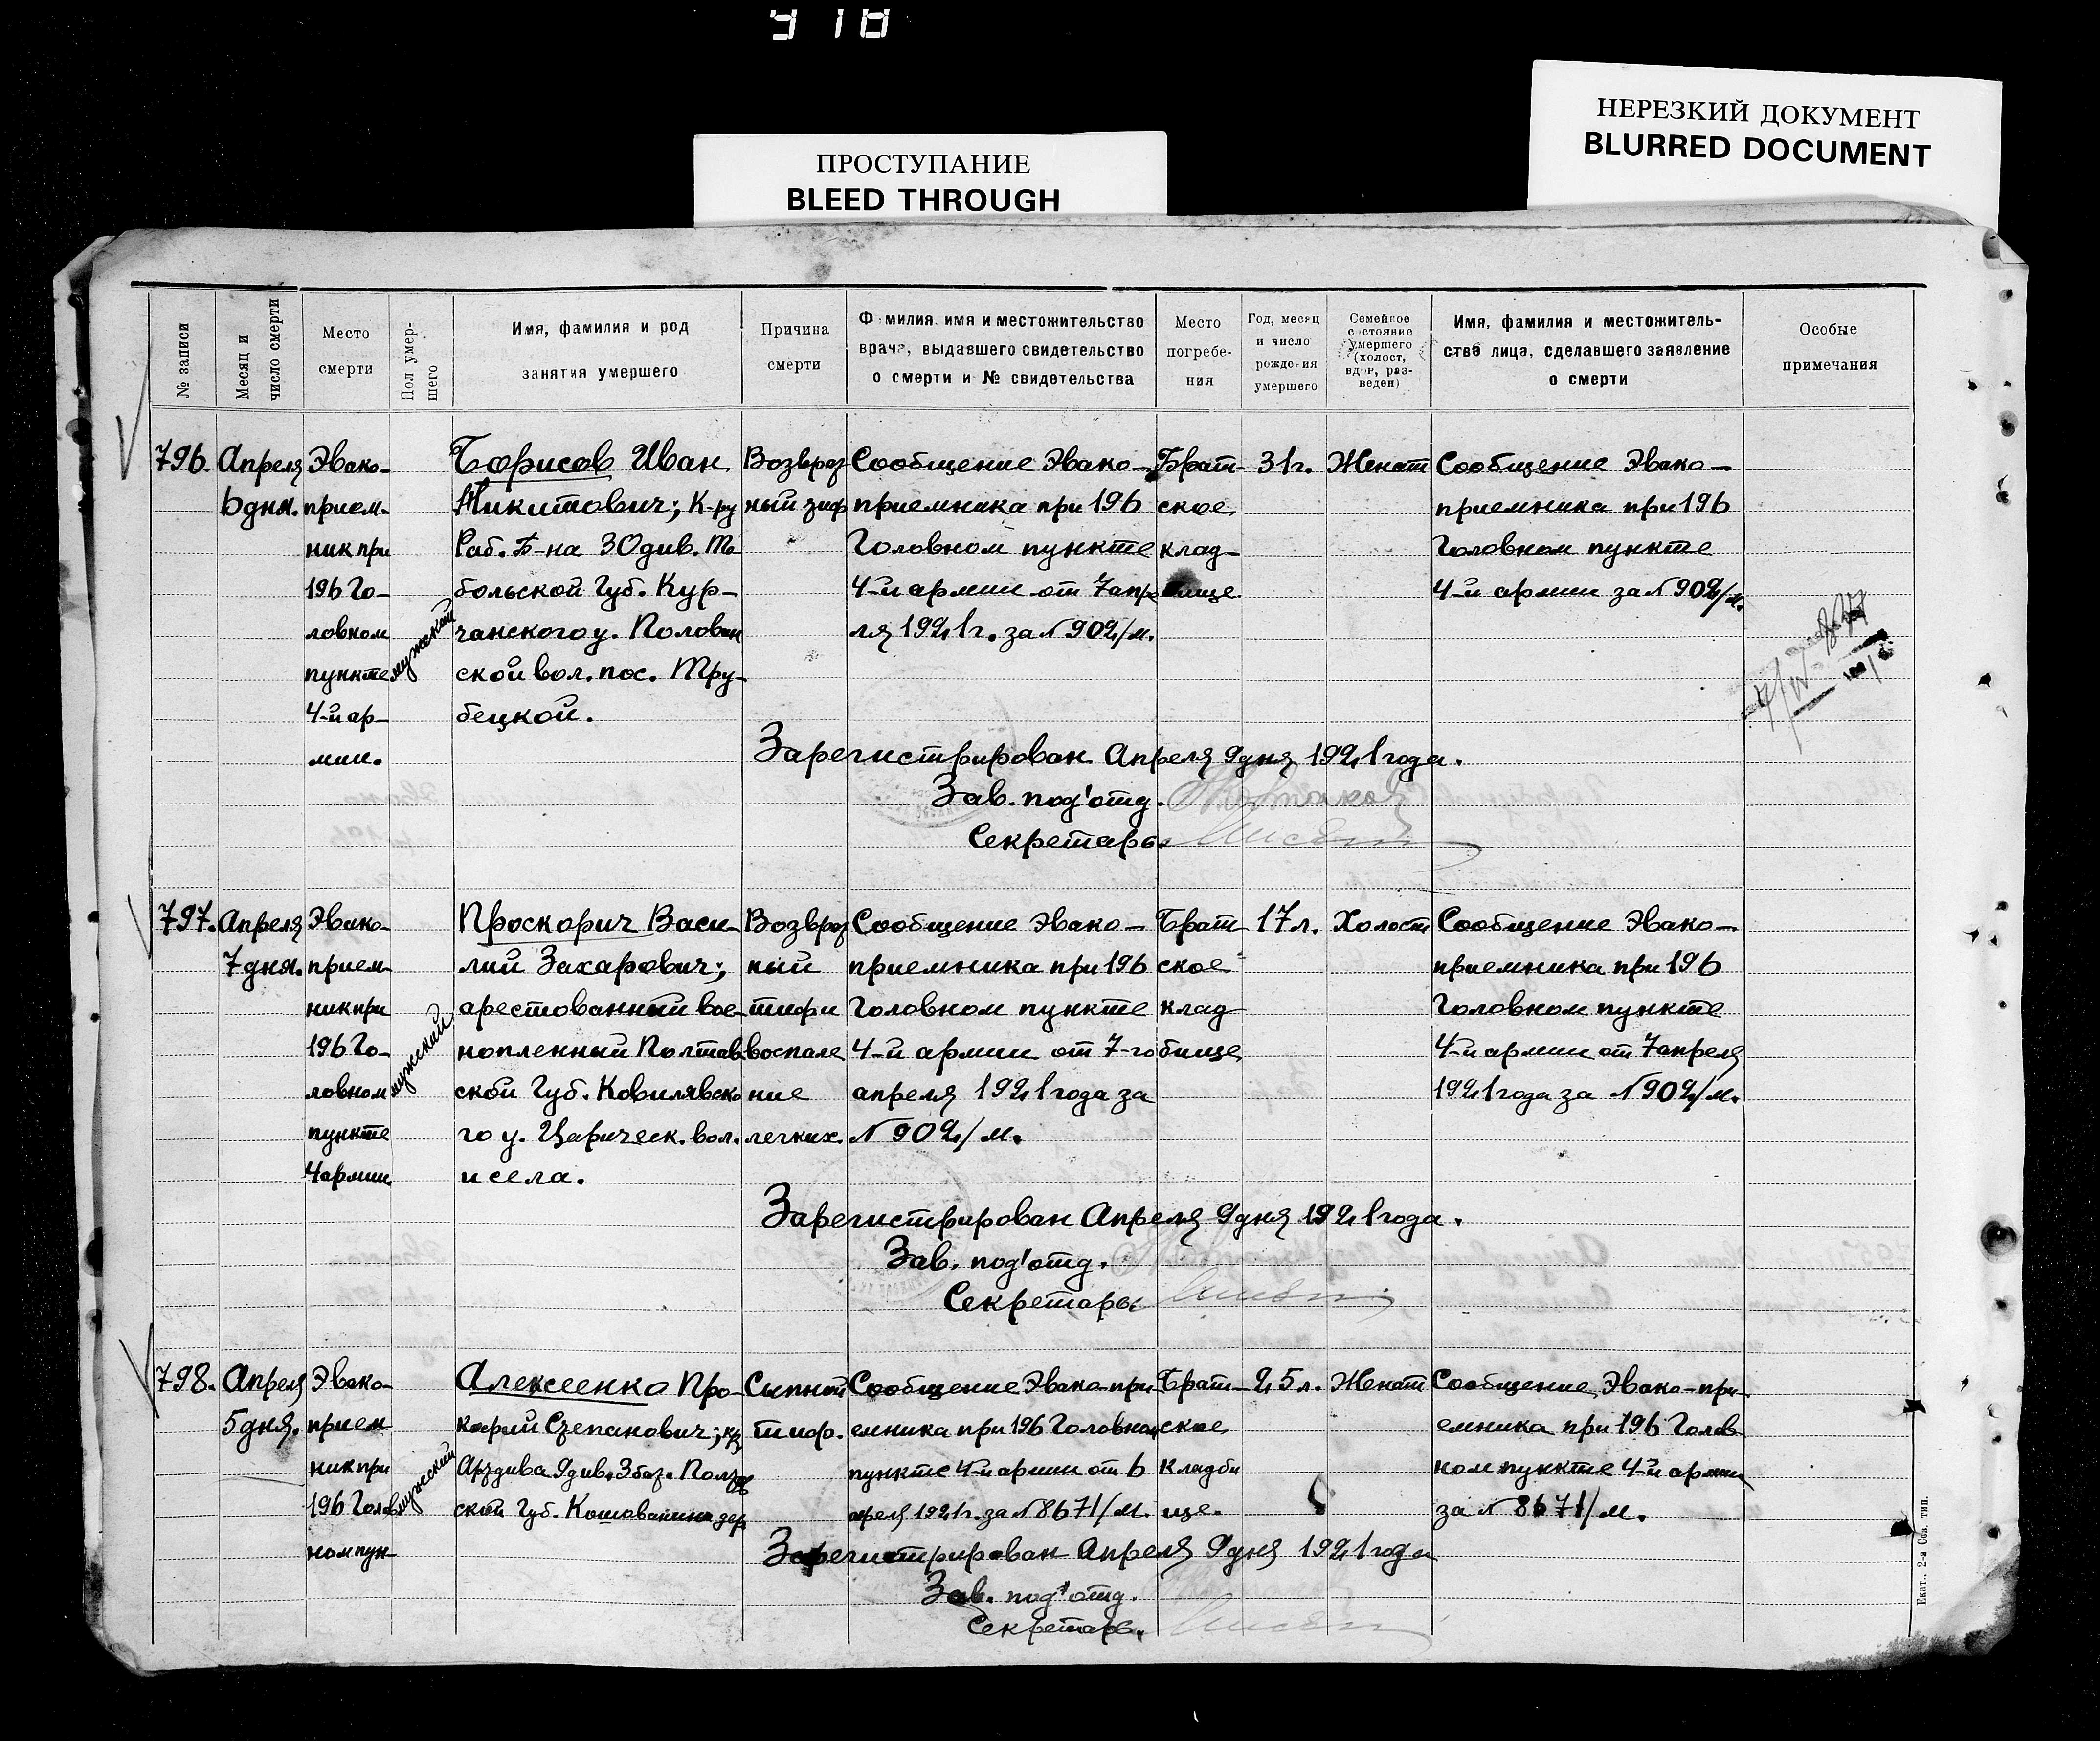 918
НЕРЕЗКИЙ ДОКУМЕНТ
BLURRED DOCUMENT
ПРОСТУПАНИЕ
BLEED THROUGH
№ записи
Месяц и
число смерти
Место
смерти
Пол умер-
шего
Имя, фамилия и род
занятия умершего
Причина
смерти
Фамилия, имя и местожительство
врача, выдавшего свидетельство
о смерти и № свидетельства
Место
погребе-
ния
Год, месяц
и число
рождения
умершего
Семейное
состояние
умершего
(холост,
вдов, раз-
веден)
Имя, фамилия и местожитель-
ство лица, сделавшего заявление
о смерти
Особые
примечания
796.
Апреля
6 дня.
Эвако-
прием-
ник при
196 Го-
ловном
пункте
4-й ар-
мии.
мужской
Борисов Иван
Никитович; К-р
Раб. Б-на 30 див. То
больской Губ. Кур-
ганского у. Половин
ской вол. пос. Тру-
бецкой.
Возврат
ный тиф
Сообщение Эвако-
приемника при 196
Головном пункте
4-й армии от 7 апре
ля 1921 г. за № 902/м.
Брат-
ское
клад-
бище
31 г.
Женат
Сообщение Эвако-
приемника при 196
Головном пункте
4-й армии за № 902/м.
Зарегистрирован Апреля 9 дня 1921 года.
Зав. под'отд.
Секретарь.
797.
Апреля
7 дня.
Эвако-
прием-
ник при
196 Го-
ловном
пункте
4 армии
мужский
Проскорич Васи-
лий Захарович;
арестованный вое-
нопленный Полтав-
ской Губ. Ковилявско
го у. Царическ. вол.
и села.
Возврат
ный
тиф и
воспале
ние
легких.
Сообщение Эвако-
приемника при 196
Головном пункте
4-й армии от 7-го
апреля 1921 года за
№ 902/м.
Брат-
ское
клад-
бище
17 л.
Холост
Сообщение Эвако-
приемника при 196
Головном пункте
4-й армии от 7 апреля
1921 года за № 902/м.
Зарегистрирован Апреля 9 дня 1921 года.
Зав. под'отд.
Секретарь
798.
Апреля
5 дня.
Эвако-
прием
ник при
196 Голов
ном пун-
мужеский
Алексеенко Про-
кофий Степанович;
9 див. 3 бат.
ской Губ.
Сыпной
тиф.
Сообщение Эвако-при
емника при 196 Головном
пункте 4-й армии от 6
апреля 1921 г. за № 8671/м.
Брат-
ское
кладби
ще.
25 л.
Женат
Сообщение Эвако-при-
емника при 196 Голов
ном пункте 4-й армии
за № 8671/м.
Зарегистрирован Апреля 9 дня 1921 года
Зав. под'отд.
Секретарь.
Екат., 2-я Сов. тип.